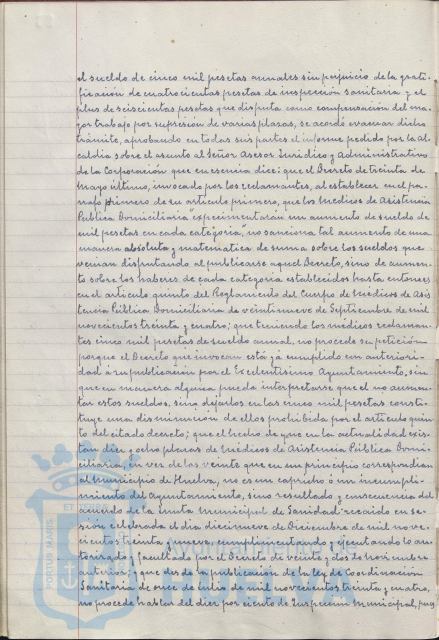 el sueldo de cinco mil pesetas anuales sin perjuicio de la grati-
ficación de cuatrocientas pesetas de inspección sanitaria y el
plus de seiscientas pesetas que disfruta como compensación del ma-
yor trabajo por supresión de varias plazas, se acordó evacuar dicho
trámite, aprobando en todas sus partes el informe pedido por la al-
caldia sobre el asunto al Señor Asesor Jurídico y Administrativo
de la Corporación que en esencia dice: que el Decreto de treinta de
mayo último, invocado por los reclamantes, al establecer en el pa-
rrafo primero de su artículo primero, que los Médicos de Asistencia
Pública Domiciliaria "experimentarán un aumento de sueldo de
mil pesetas en cada categoría", no sanciona tal aumento de una
manera absoluta y matemática de suma sobre los sueldos que
venian disfrutando al publicarse aquel Decreto, sino de aumen-
to sobre los haberes de cada categoría establecidos hasta entonces
en el artículo quinto del Reglamento del Cuerpo de Médicos de Asis-
tencia Pública Domiciliaria de veintinueve de Septiembre de mil
novecientos treinta y cuatro; que teniendo los médicos reclaman-
tes cinco mil pesetas de sueldo anual, no procede su petición
porque el Decreto que invocan está ya cumplido con anteriori-
dad á su publicación por el Excelentísimo Ayuntamiento, sin
que en manera alguna pueda interpretarse que el no aumen-
tar estos sueldos, sino dejarlos en las cinco mil pesetas consti-
tuye una disminución de ellos prohibida por el artículo quin-
to del citado decreto; que el hecho de que en la actualidad exis-
tan diez y ocho plazas de Médicos de Asistencia Pública Domi-
ciliaria, en vez de las veinte que en un principio correspondian
al Municipio de Huelva, no es un capricho ó un incumpli-
miento del Ayuntamiento, sino resultado y consecuencia del
acuerdo de la Junta Municipal de Sanidad recaido en se-
sión celebrada el dia diecinueve de Diciembre de mil nove-
cientos treinta y nueve, cumplimentando y ejecutando lo au-
torizado y facultado por el Decreto de veinte y dos de noviembre
anterior; que desde la publicación de la ley de Coordinación
Sanitaria de once de Julio de mil novecientos treinta y cuatro,
no procede hablar del diez por ciento de Inspección Municipal, pues
PORTUS MARIS ET